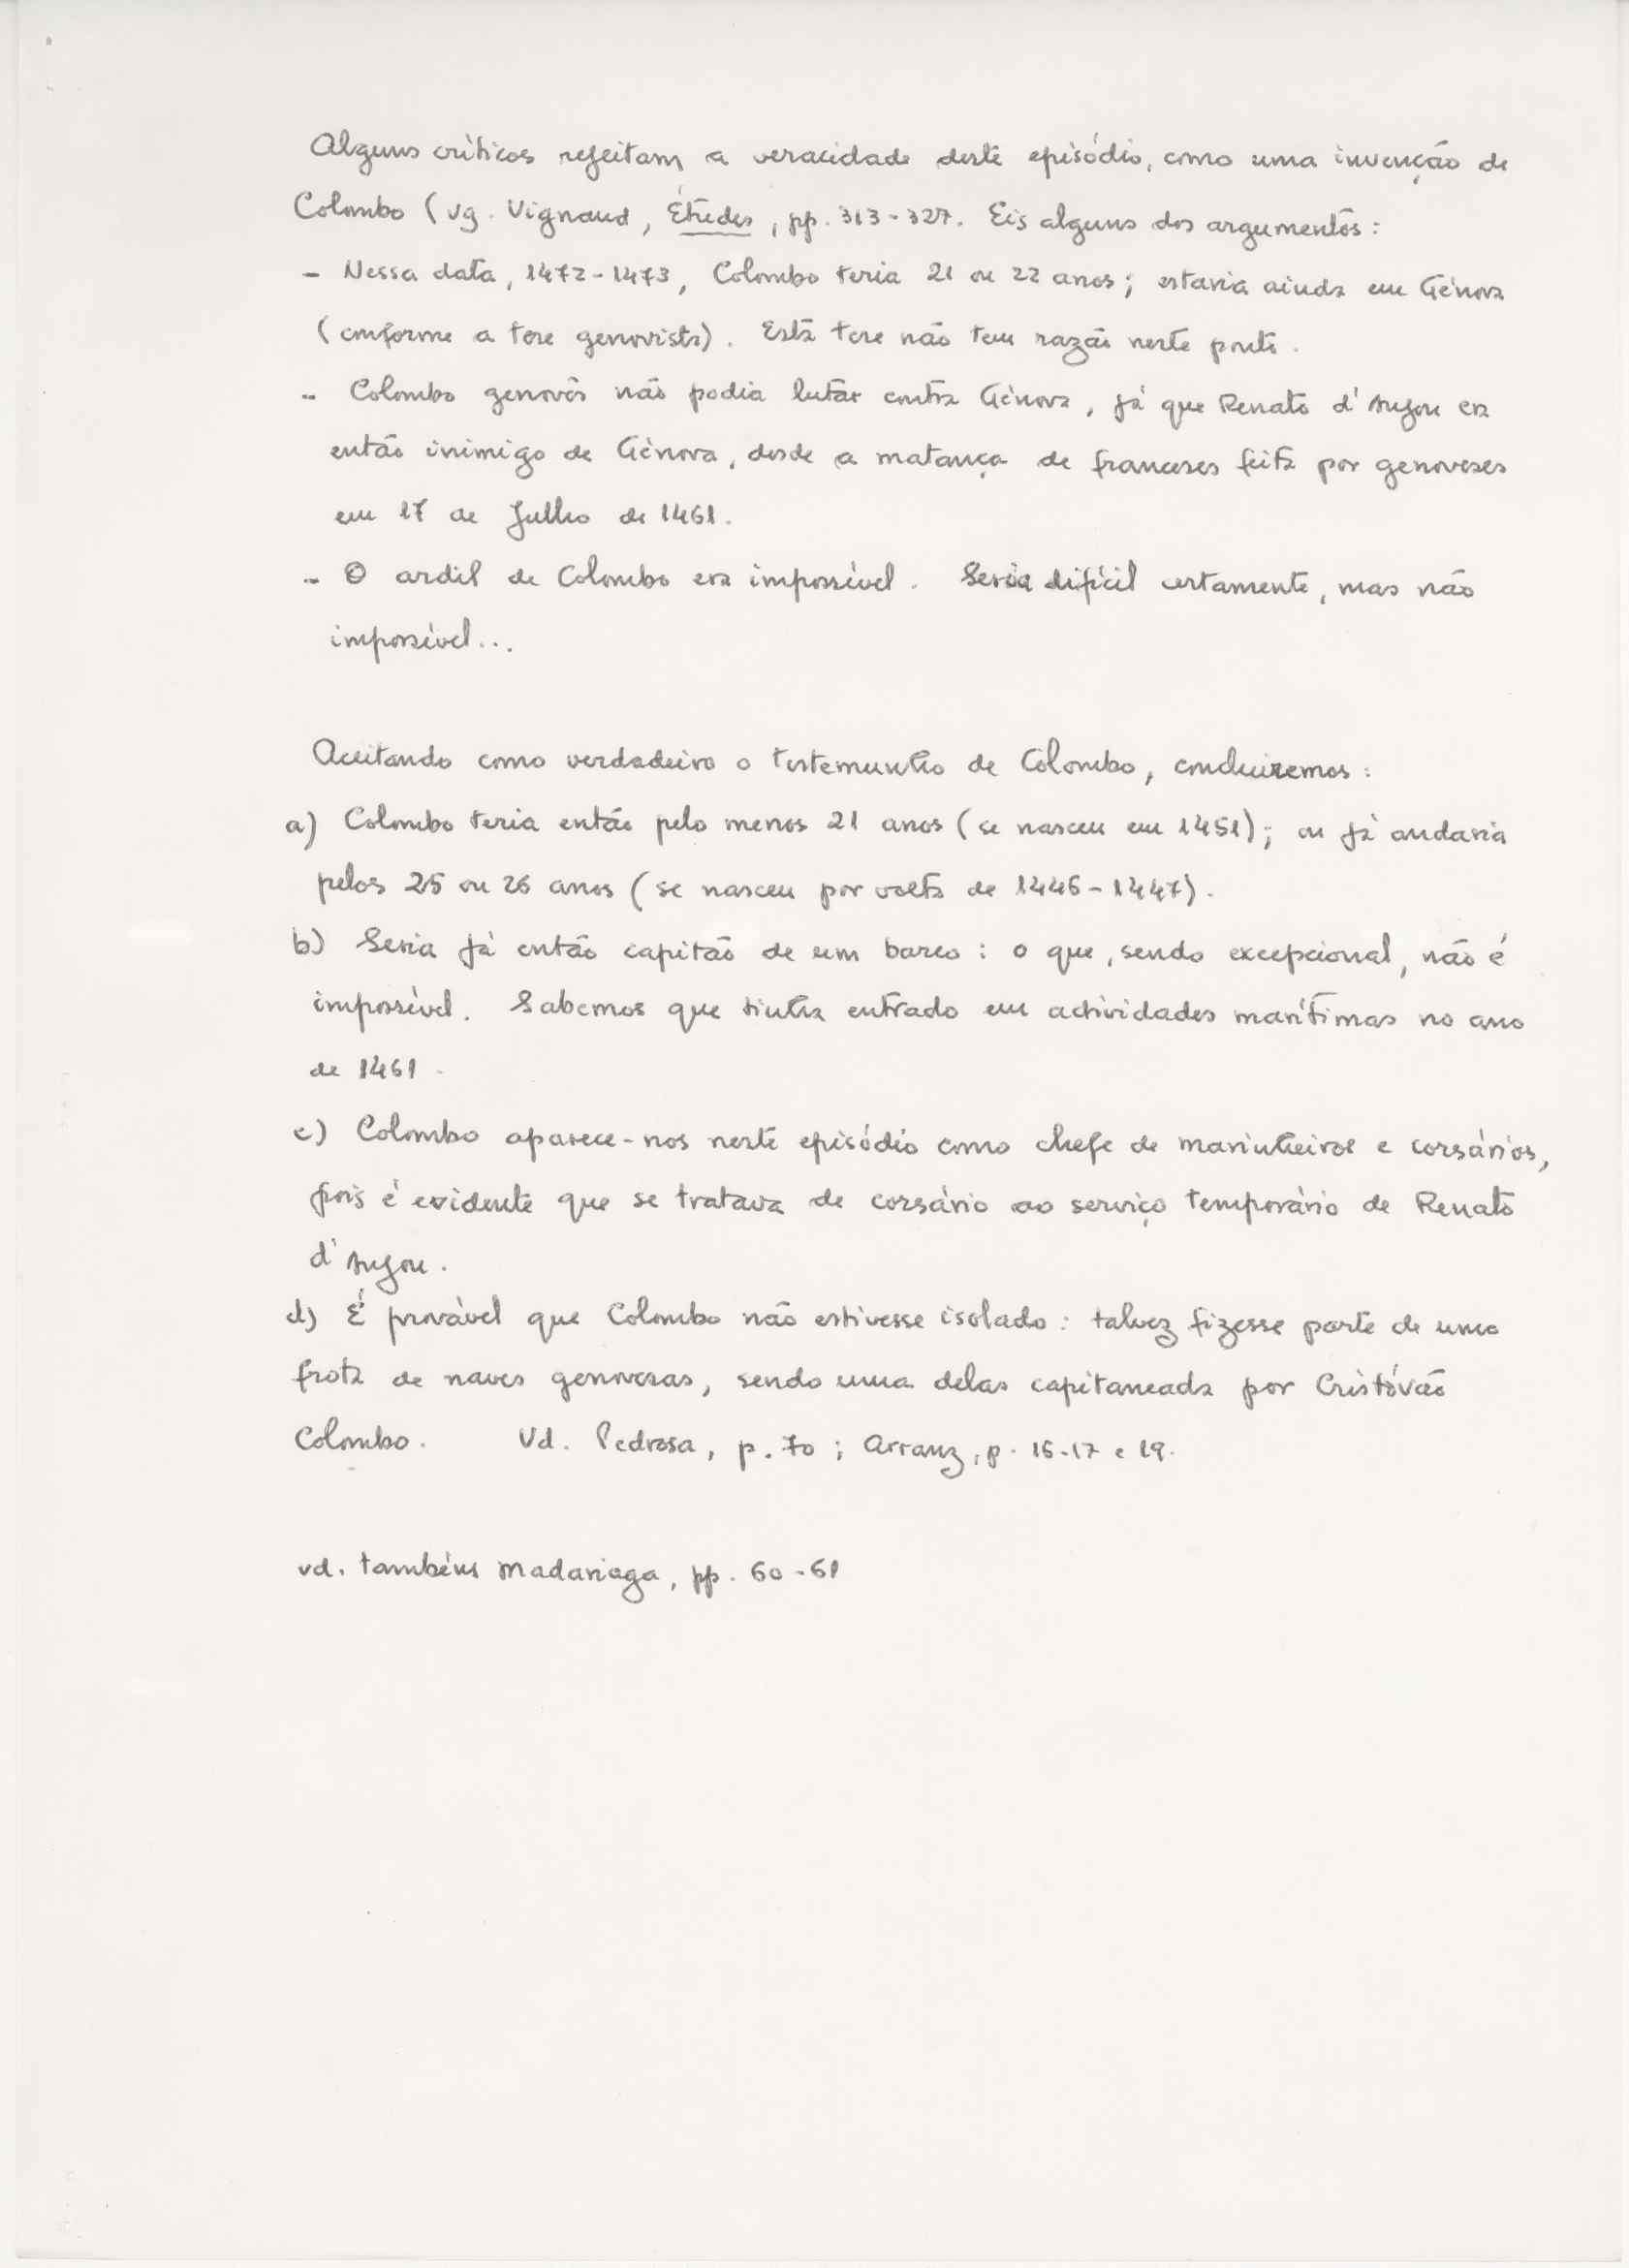 Alguns críticos rejeitam a veracidade deste episódio, como uma invenção de
Colombo (vg. Vignaud, Études, pp. 313-327. Eis alguns dos argumentos:
- Nessa data, 1472-1473, Colombo teria 21 ou 22 anos; estaria ainda em Génova
(conforme a tese genovista). Esta tese não tem razão neste ponto.
- Colombo genovês não podia lutar contra Génova, já que Renato d'Anjou era
então inimigo de Génova, desde a matança de franceses feita por genoveses
em 17 de Julho de 1461.
- O ardil de Colombo era impossível. Seria difícil certamente, mas não
impossível...
Aceitando como verdadeiro o testemunho de Colombo, concluiremos:
a) Colombo teria então pelo menos 21 anos (se nasceu em 1451); ou já andaria
pelos 25 ou 26 anos (se nasceu por volta de 1446-1447).
b) Seria já então capitão de um barco: o que, sendo excepcional, não é
impossível. Sabemos que tinha entrado em actividades marítimas no ano
de 1461.
c) Colombo aparece-nos neste episódio como chefe de marinheiros e corsários,
pois é evidente que se tratava de corsário ao serviço temporário de Renato
d'Anjou.
d) É provável que Colombo não estivesse isolado: talvez fizesse parte de uma
frota de naves genovesas, sendo uma delas capitaneada por Cristóvão
Colombo. Vd. Pedrosa, p. 70; Arranz, p. 16-17 e 19.
vd. também Madariaga, pp. 60-61